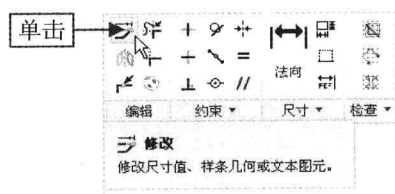 单击
法向
REF
编辑 约束 尺寸 检查
修改
修改尺寸值、样条几何或文本图元。